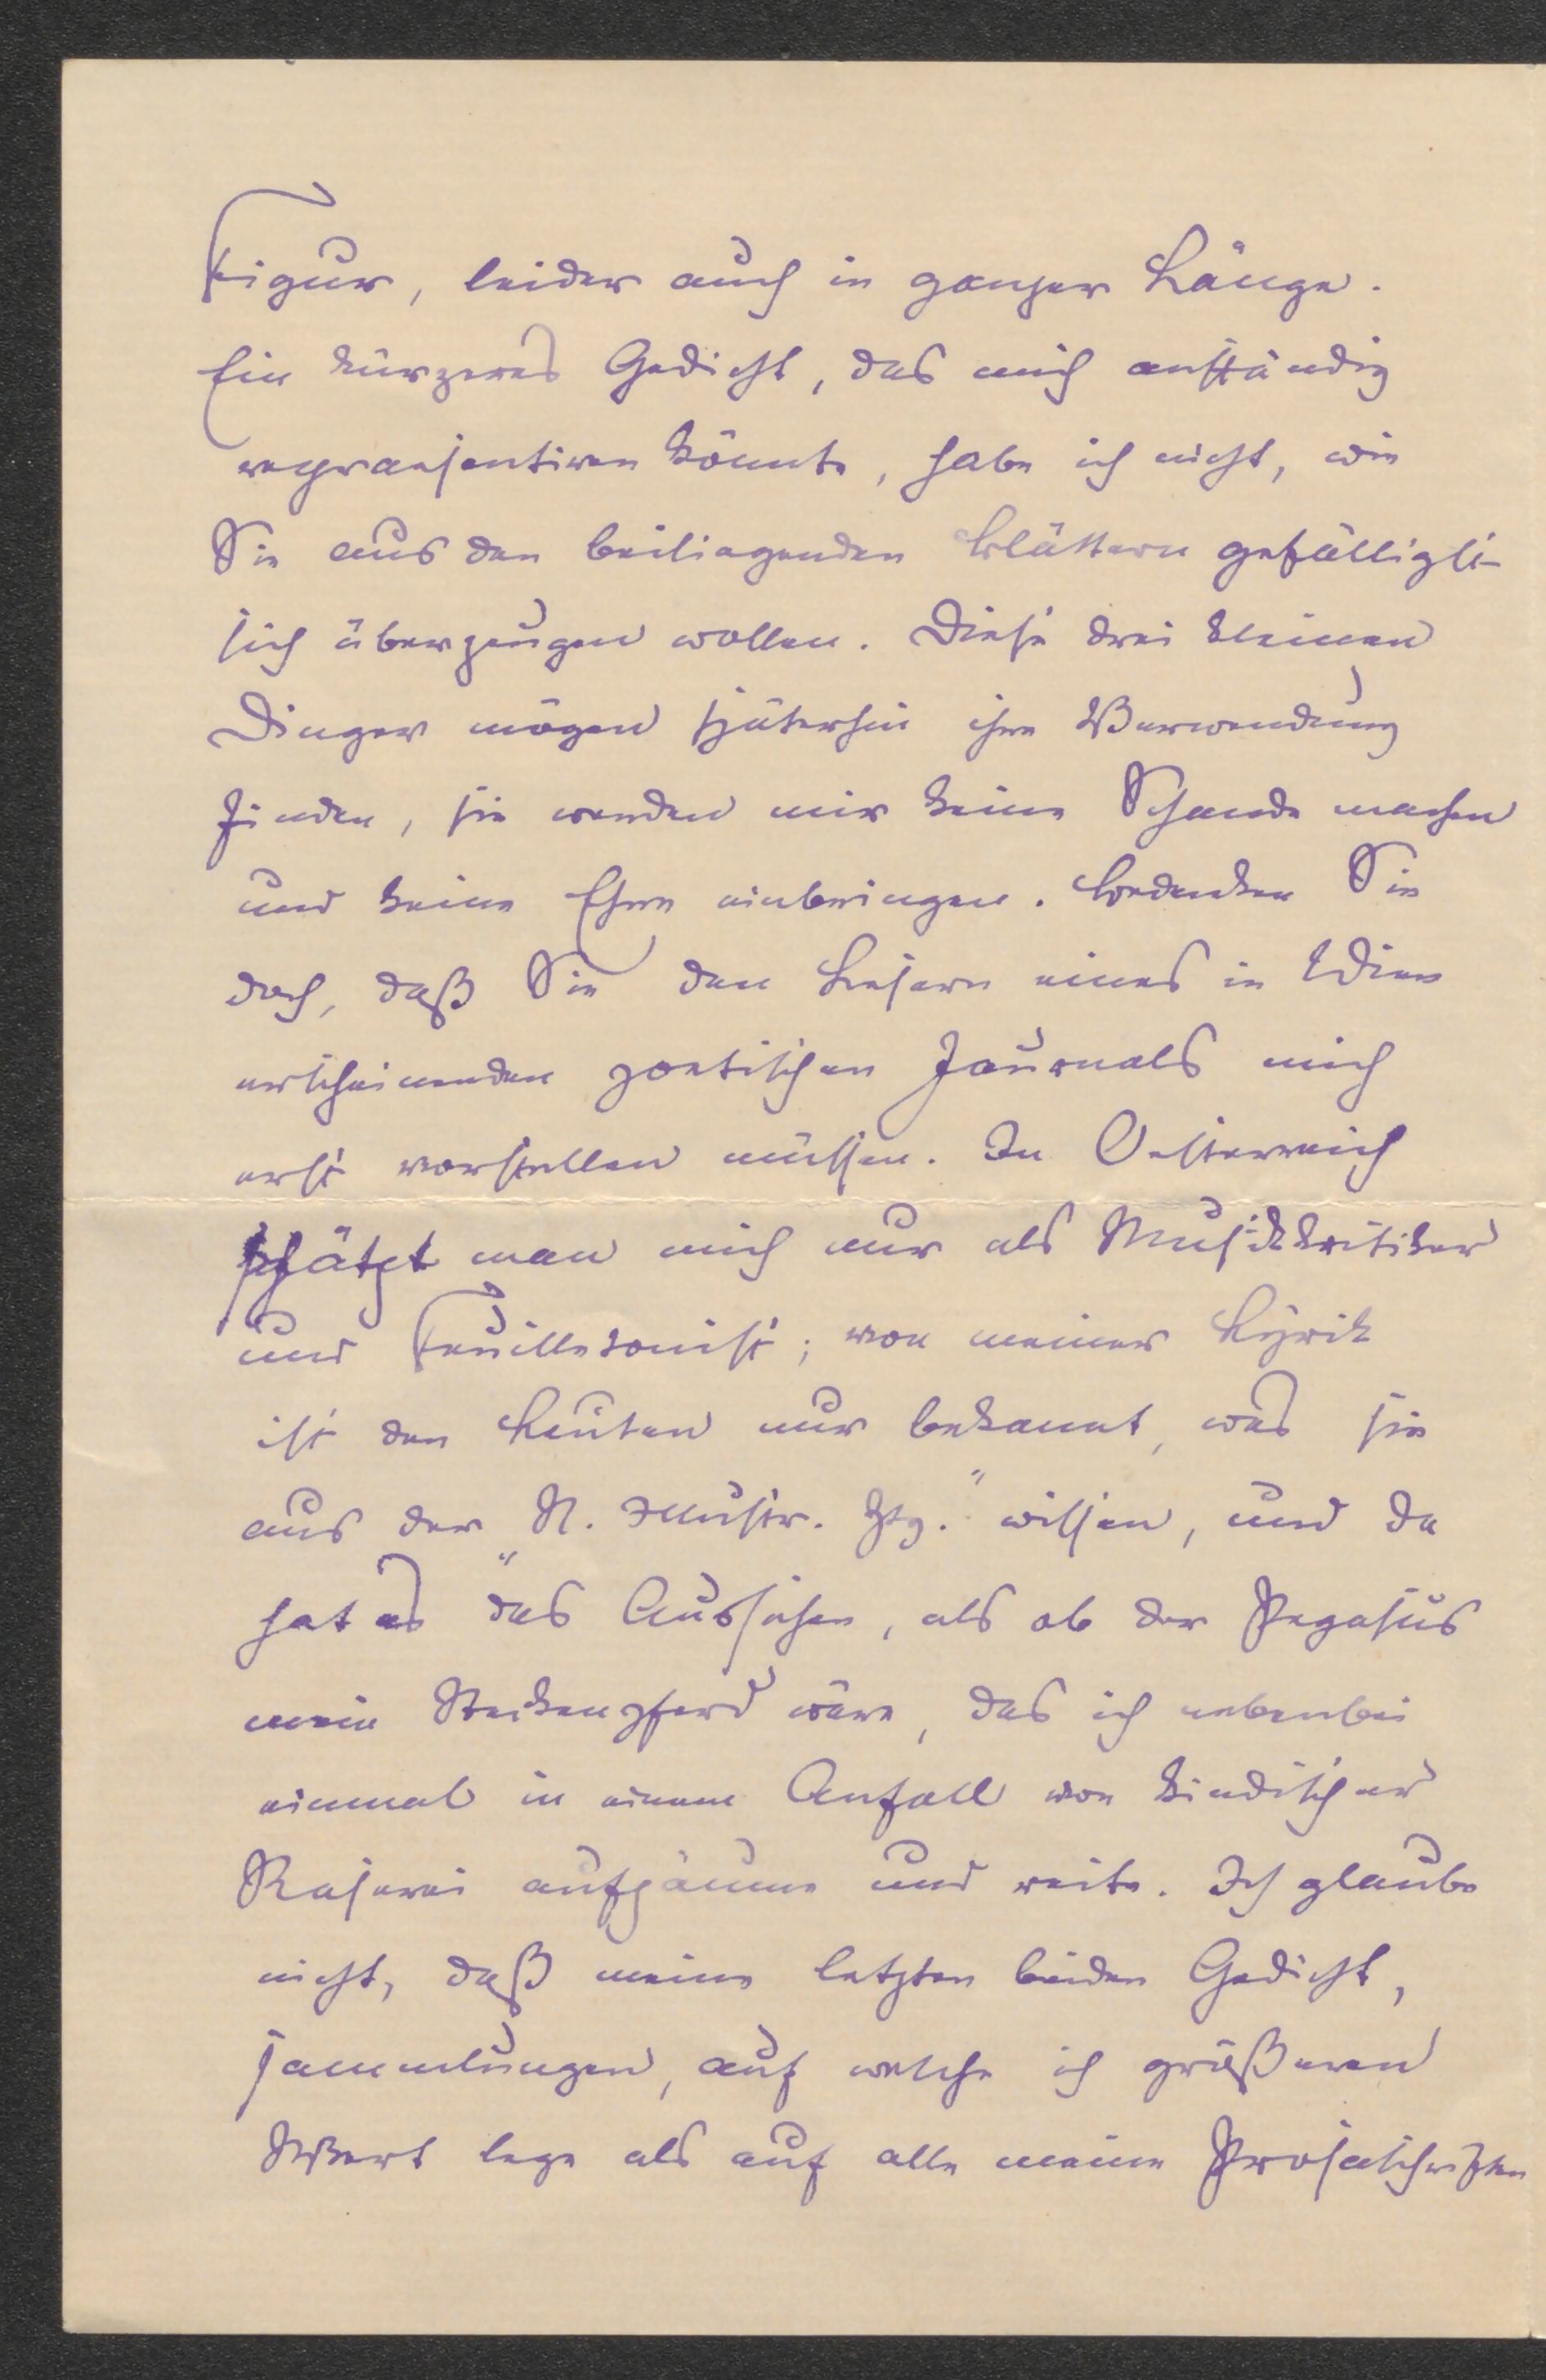 Figur, leider auch in ganzer Länge.
Ein kürzeres Gedicht, das mich anständig
repraesentiren könnte, habe ich nicht, wie
Sie aus den beiliegenden Blättern gefälligst
sich überzeugen wollen. Diese drei kleinen
Dinger mögen späterhin ihre Verwendung
finden, sie werden mir keine Schande machen
und keine Ehre einbringen. Bedenken Sie
doch, daß Sie den Lesern eines in Wien
erscheinenden poetischen Journals mich
erst vorstellen müssen. In Oesterreich
schätzt man mich nur als Musikkritiker
und Feuilletonist; von meiner Lyrik
ist den Leuten nur bekannt, was sie
aus der „N. Illustr. Ztg.“ wissen, und da
hat es das Aussehen, als ob der Pegasus
mein Steckenpferd wäre, das ich nebenbei
einmal in einem Anfall von kindischer
Raserei aufzäume und reite. Ich glaube
nicht, daß meine letzten beiden Gedicht,
sammlungen, auf welche ich größeren
Wert lege als auf alle meine Prosaschriften